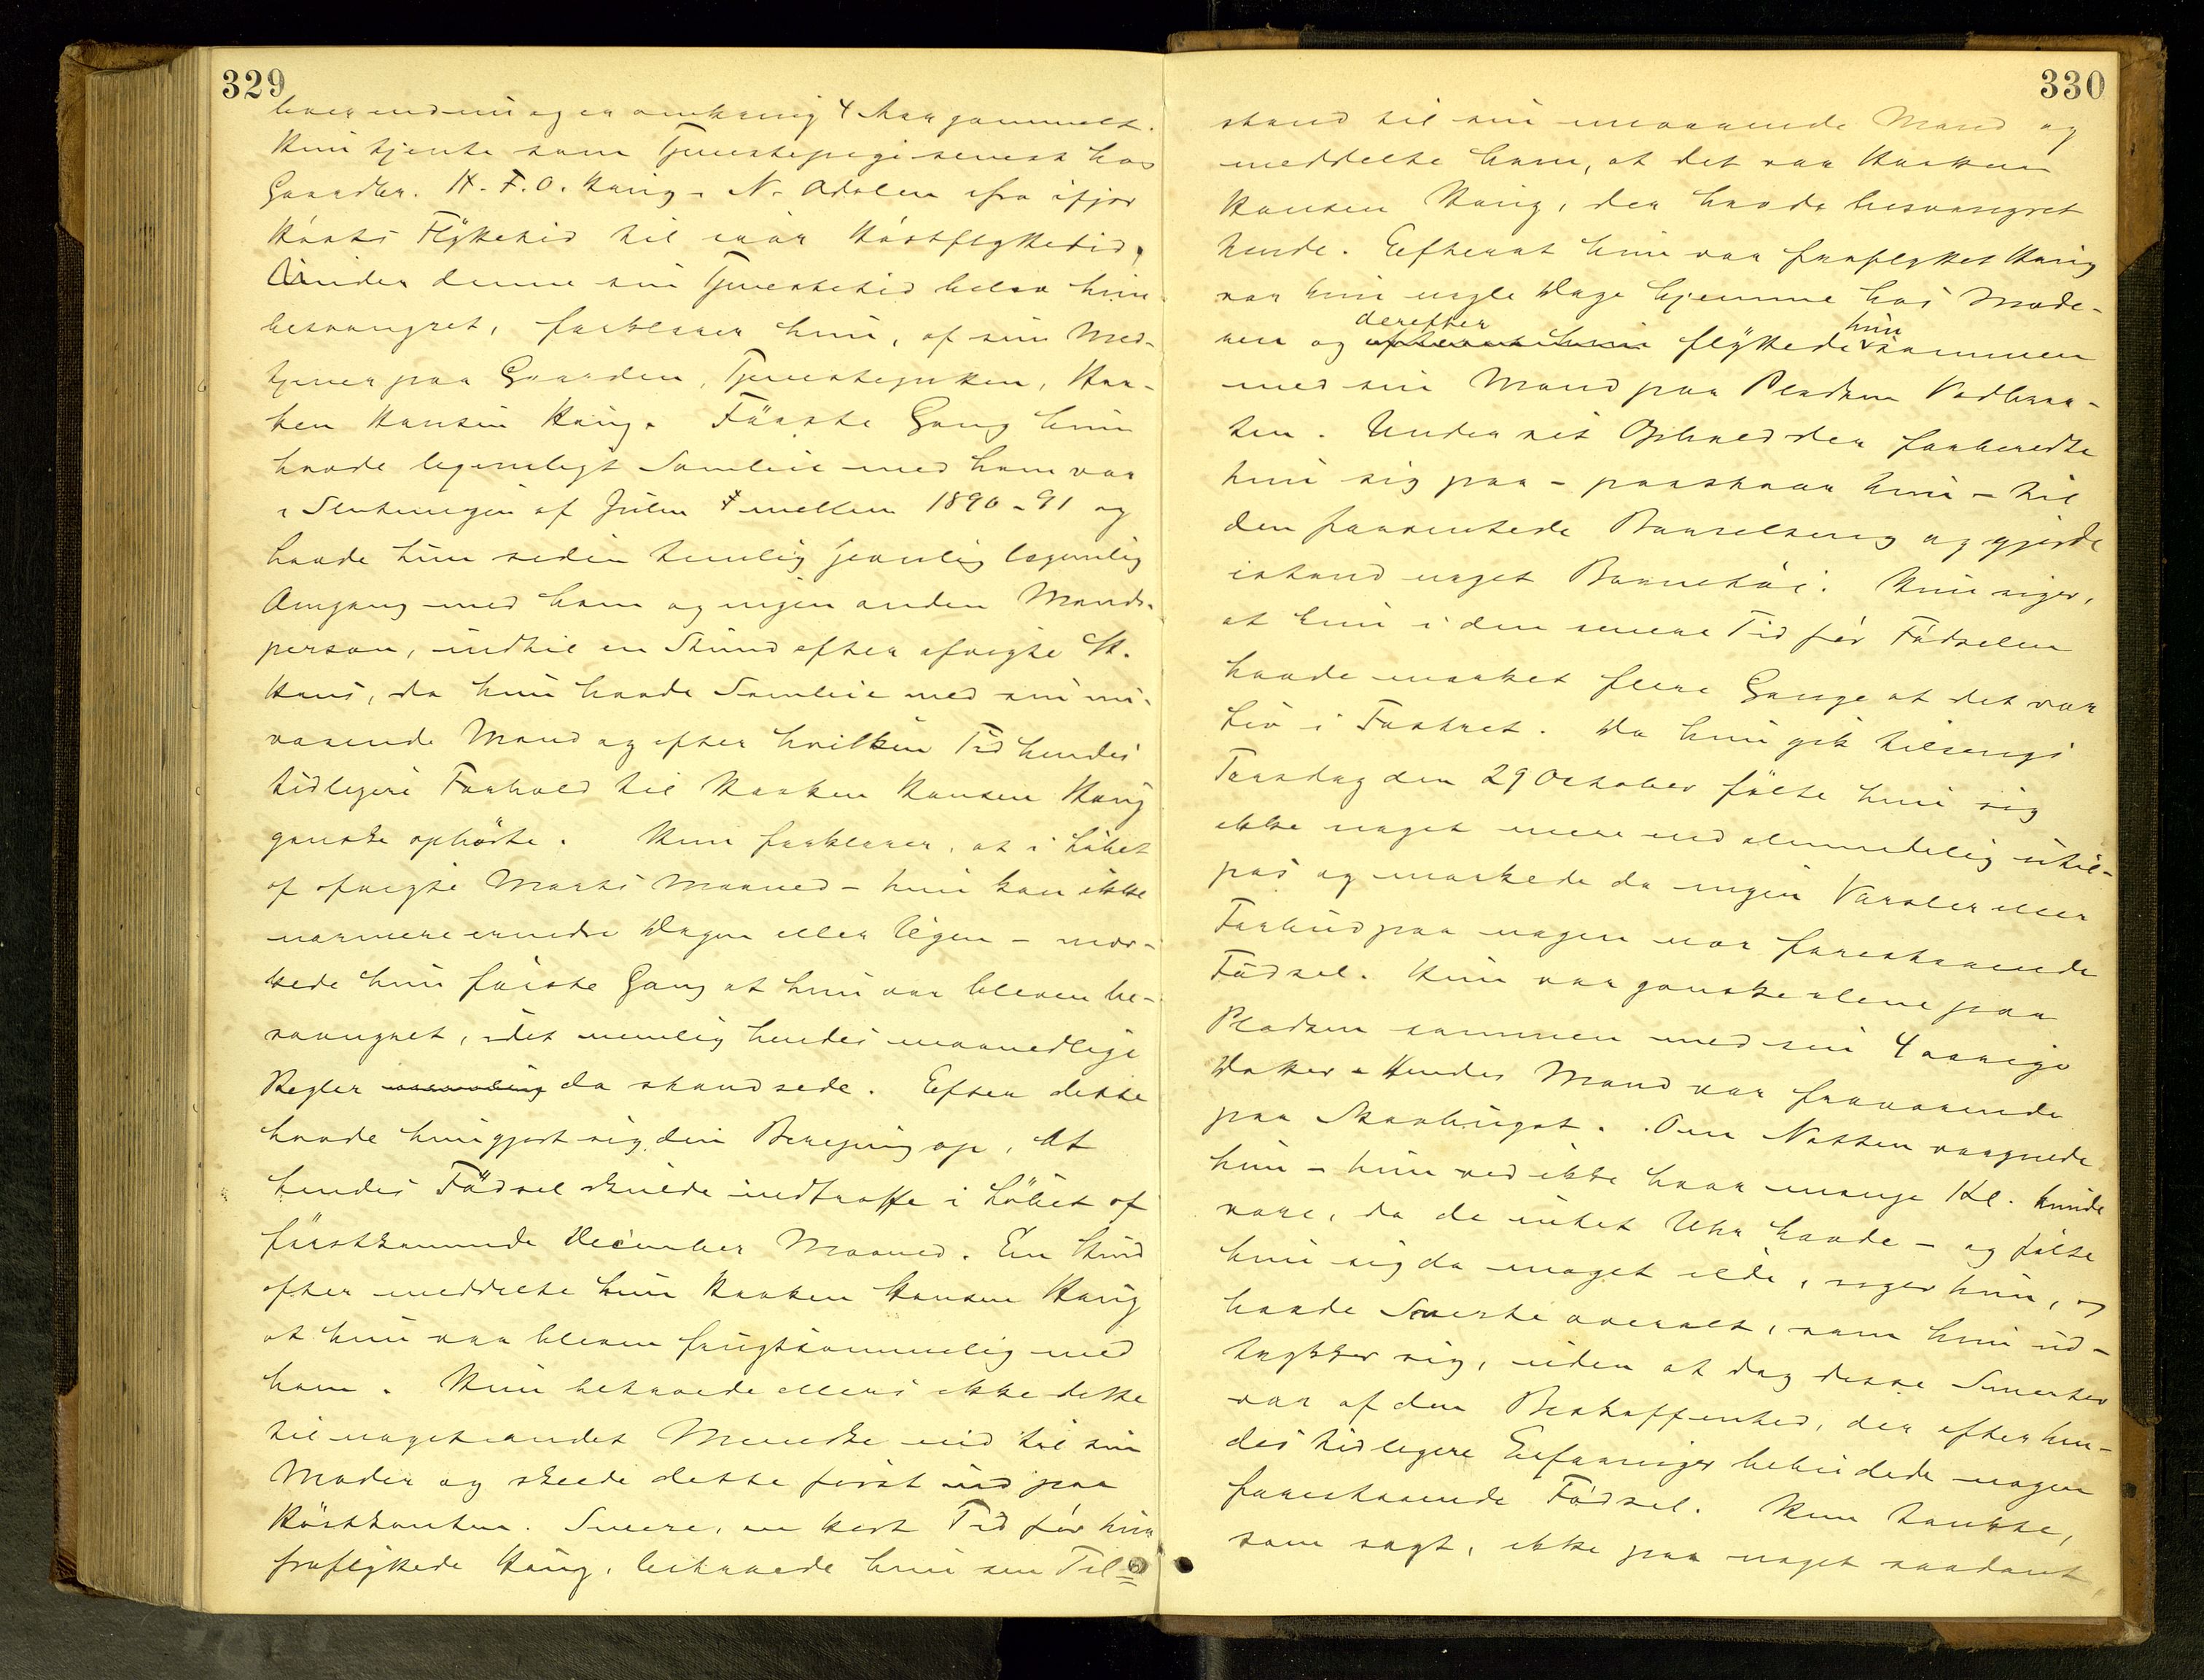 329
lever endnu og er omkring 4 Aar gammelt.
Hun tjente som Tjenestepige senest hos
Gaardbr. H. F. O. Haug, N. Aadalen fra ifjor
Høsts Flyttetid til iaar Høstflyttetid.
Under denne sin Tjenestetid blev hun
besvangret, forklarer hun, af sin Med-
tjener paa Gaarden, Tjenestegutten, Haa-
ken Hansen Haug. Første Gang hun
havde legemligt Samleie med ham var
i Slutningen af Julen mellem 1890-91 og
havde hun siden temlig jevnlig legemlig
Omgang med ham og ingen anden Mands-
person, indtil en Stund efter afvigte St.
Hans, da hun havde Samleie med sin nu-
værende Mand og efter hvilken Tid hendes
tidligere Forhold til Haaken Hansen Haug
ganske ophørte. Hun forklarer, at i Løbet
af afvigte Marts Maaned - hun kan ikke
nærmere erindre Dagen eller Ugen - mær-
kede hun første Gang at hun var bleven be-
svangret, idet nemlig hendes maanedlige
Regler da standsede. Efter dette
havde hun gjort sig den Beregning op, at
hendes Fødsel skulde indtræffe i Løbet af
førstkommende December Maaned. En Stund
efter meddelte hun Haaken Hansen Haug
at hun var bleven frugtsommelig med
ham. Hun betroede ellers ikke dette
til noget andet Menneske end til sin
Moder og skede dette først ud paa
Høstkanten. Senere, en kort Tid før hun
fraflyttede Haug, betroede hun sin Til-
330
stand til sin nuværende Mand og
meddelte ham, at det var Haaken
Hansen Haug, der havde besvangret
hende. Efterat hun var fraflyttet Haug
var hun nogle Dage hjemme hos Mode-
derefter hun
ren og efterat hun flyttede sammen
med sin Mand paa Pladsen Vadbraa-
ten. Under sit Ophold der forberedte
hun sig paa - paastaar hun - til
den forventede Barselseng og gjorde
istand noget Barnetøi. Hun siger,
at hun i den senere Tid før Fødselen
havde mærket flere Gange at det var
Liv i Fostret. Da hun gik tilsengs
Torsdag den 29 October følte hun sig
ikke noget mere end almindelig util-
pas og mærkede da ingen Varsler eller
Forbud paa nogen nær forestaaende
Fødsel. Hun var ganske alene paa
Pladsen sammen med sin 4 aarige
Datter. Hendes Mand var fraværende
paa Skovhugst. Om Natten vaagnede
hun - hun ved ikke hvor mange Kl. kunde
være, da de intet Uhr havde - og følte
hun sig da meget ilde, siger hun, og
havde Smerte overalt, som hun ud-
trykker sig, uden at dog disse Smerter
var af den Beskaffenhed, der efter hen-
des tidligere Erfaringer bebudede nogen
forestaaende Fødsel. Hun tænkte,
som sagt, ikke paa noget saadant,